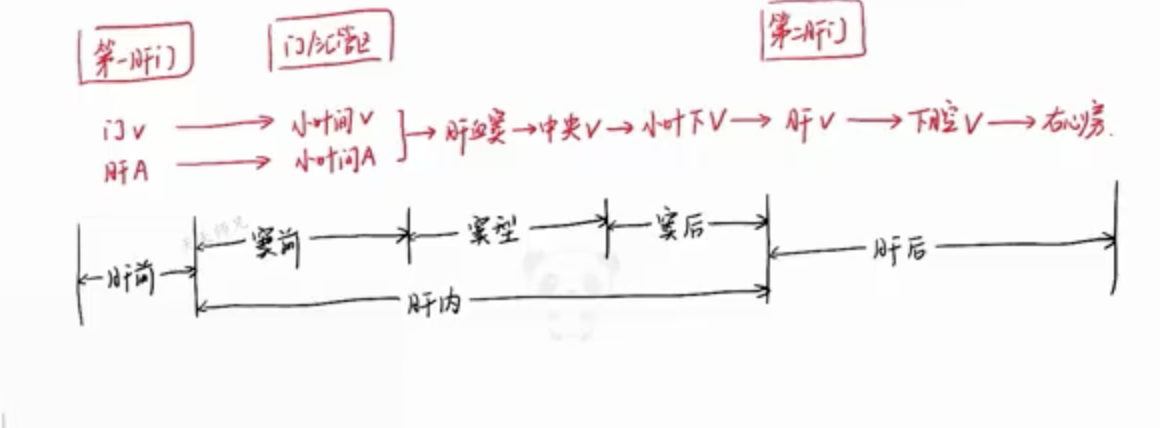 第一肝门 门/汇管区 第二肝门
门V → 小叶间V
肝A → 小叶间A
→ 肝血窦 → 中央V → 小叶下V → 肝V → 下腔V → 右心房.
窦前 窦型 窦后 肝后
肝前
肝内